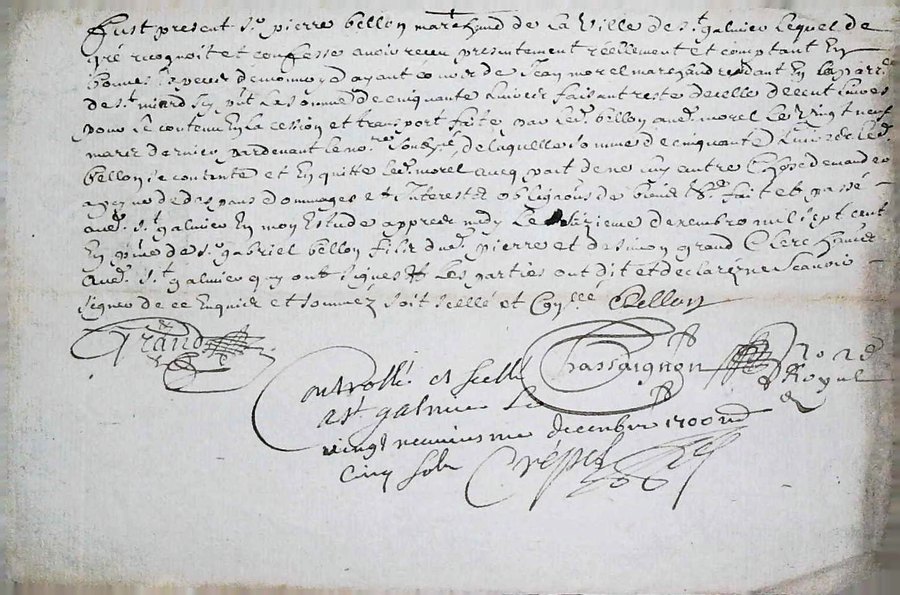 Fust present Sr pierre bellon marchand de La Ville de St galmier Lequel de
gré recognoit et confesse avoir receu presentement réellement et comptant En
bonnes Especes de monnoye ayant cours de Jean morel marchand residant En la parr.
de St miard Icy pnt La somme de cinquante Livres faisant reste de celle de cent Livres
pour Le contenu En La cession et transport faite par Led. bellon aud. morel Le Vingt neuf
mars dernier pardevant Le nore soubzne, de laquelle somme de cinquante Livres Led.
bellon se contante et En quitte Led. morel avec pait de ne luy autre Chose demander
a peyne de despans dommages et Interests obligaons de biens &a fait et passé
aud. St galmier En mon Estude appres midy Le decembre mil sept cent
En pnce de Sr gabriel bellon fils dud. pierre et de simon grand Clerc
aud. St galmier quy ont signés Les parties ont dit et declaré ne scavoir
signer de ce Enquier et sommez soit scellé et Conllé Bellon
Grand
Chassaignon no re
Royal
Controllé et scellé
a St galmier Le
vingt neuviesme decembre 1700
cinq sols Crépet